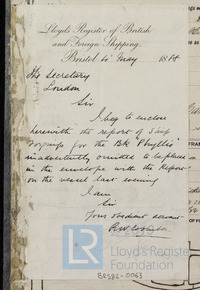 Lloyd's Register of British
and Foreign Shipping.
Bristol 4 May 1884
The Secretary
London
Sir
I beg to enclose
herewith the report of Ship
for the Bk "Phyllis"
inadvertently omitted to be placed
in the envelope with the Report
on the vessel last evening
I am
Sir
Your obedient servant
LR
Lloyd's Register
Foundation
BRS82-0063